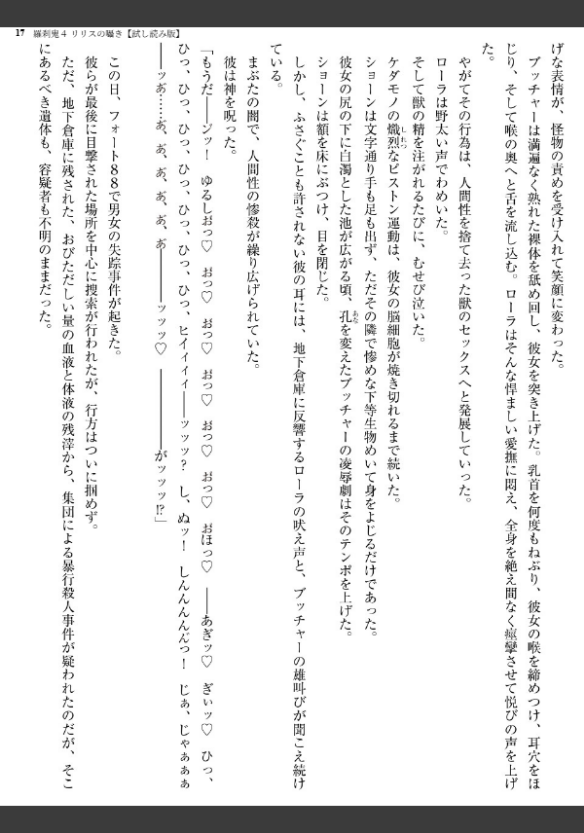 17 羅刹鬼4 リリスの囁き【試し読み版】
げな表情が、怪物の責めを受け入れて笑顔に変わった。
ブッチャーは満遍なく熟れた裸体を舐め回し、彼女を突き上げた。乳首を何度もねぶり、彼女の喉を締めつけ、耳穴をほ
じり、そして喉の奥へと舌を流し込む。ローラはそんな悍ましい愛撫に悶え、全身を絶え間なく痙攣させて悦びの声を上げ
た。
やがてその行為は、人間性を捨て去った獣のセックスへと発展していった。
ローラは野太い声でわめいた。
そして獣の精を注がれるたびに、むせび泣いた。
ケダモノの熾烈なピストン運動は、彼女の脳細胞が焼き切れるまで続いた。
ショーンは文字通り手も足も出ず、ただその隣で惨めな下等生物めいて身をよじるだけであった。
彼女の尻の下に白濁とした池が広がる頃、孔を変えたブッチャーの凌辱劇はそのテンポを上げた。
ショーンは額を床にぶつけ、目を閉じた。
しかし、ふさぐことも許されない彼の耳には、地下倉庫に反響するローラの吠え声と、ブッチャーの雄叫びが聞こえ続け
ている。
まぶたの闇で、人間性の惨殺が繰り広げられていた。
彼は神を呪った。
「もうだ――ンﾞッ！　ゆるしおっ♡　おっ♡　おっ♡　おっ♡　おっ♡　おっ♡　おほっ♡　――あぎッ♡　ぎぃッ♡　ひっ、
ひっ、ひっ、ひっ、ひっ、ひっ、ひっ、ヒイィィィ――ッッッ？　し、ぬッ！　しんんんんﾞっ！　じぁ、じゃぁぁぁ
――ッあﾞ……あﾞ、あﾞ、あﾞ、あﾞ、あﾞ――――ッッッ♡　――――がッッッ!?」
この日、フォート８８で男女の失踪事件が起きた。
彼らが最後に目撃された場所を中心に捜索が行われたが、行方はついに掴めず。
ただ、地下倉庫に残された、おびただしい量の血液と体液の残滓から、集団による暴行殺人事件が疑われたのだが、そこ
にあるべき遺体も、容疑者も不明のままだった。